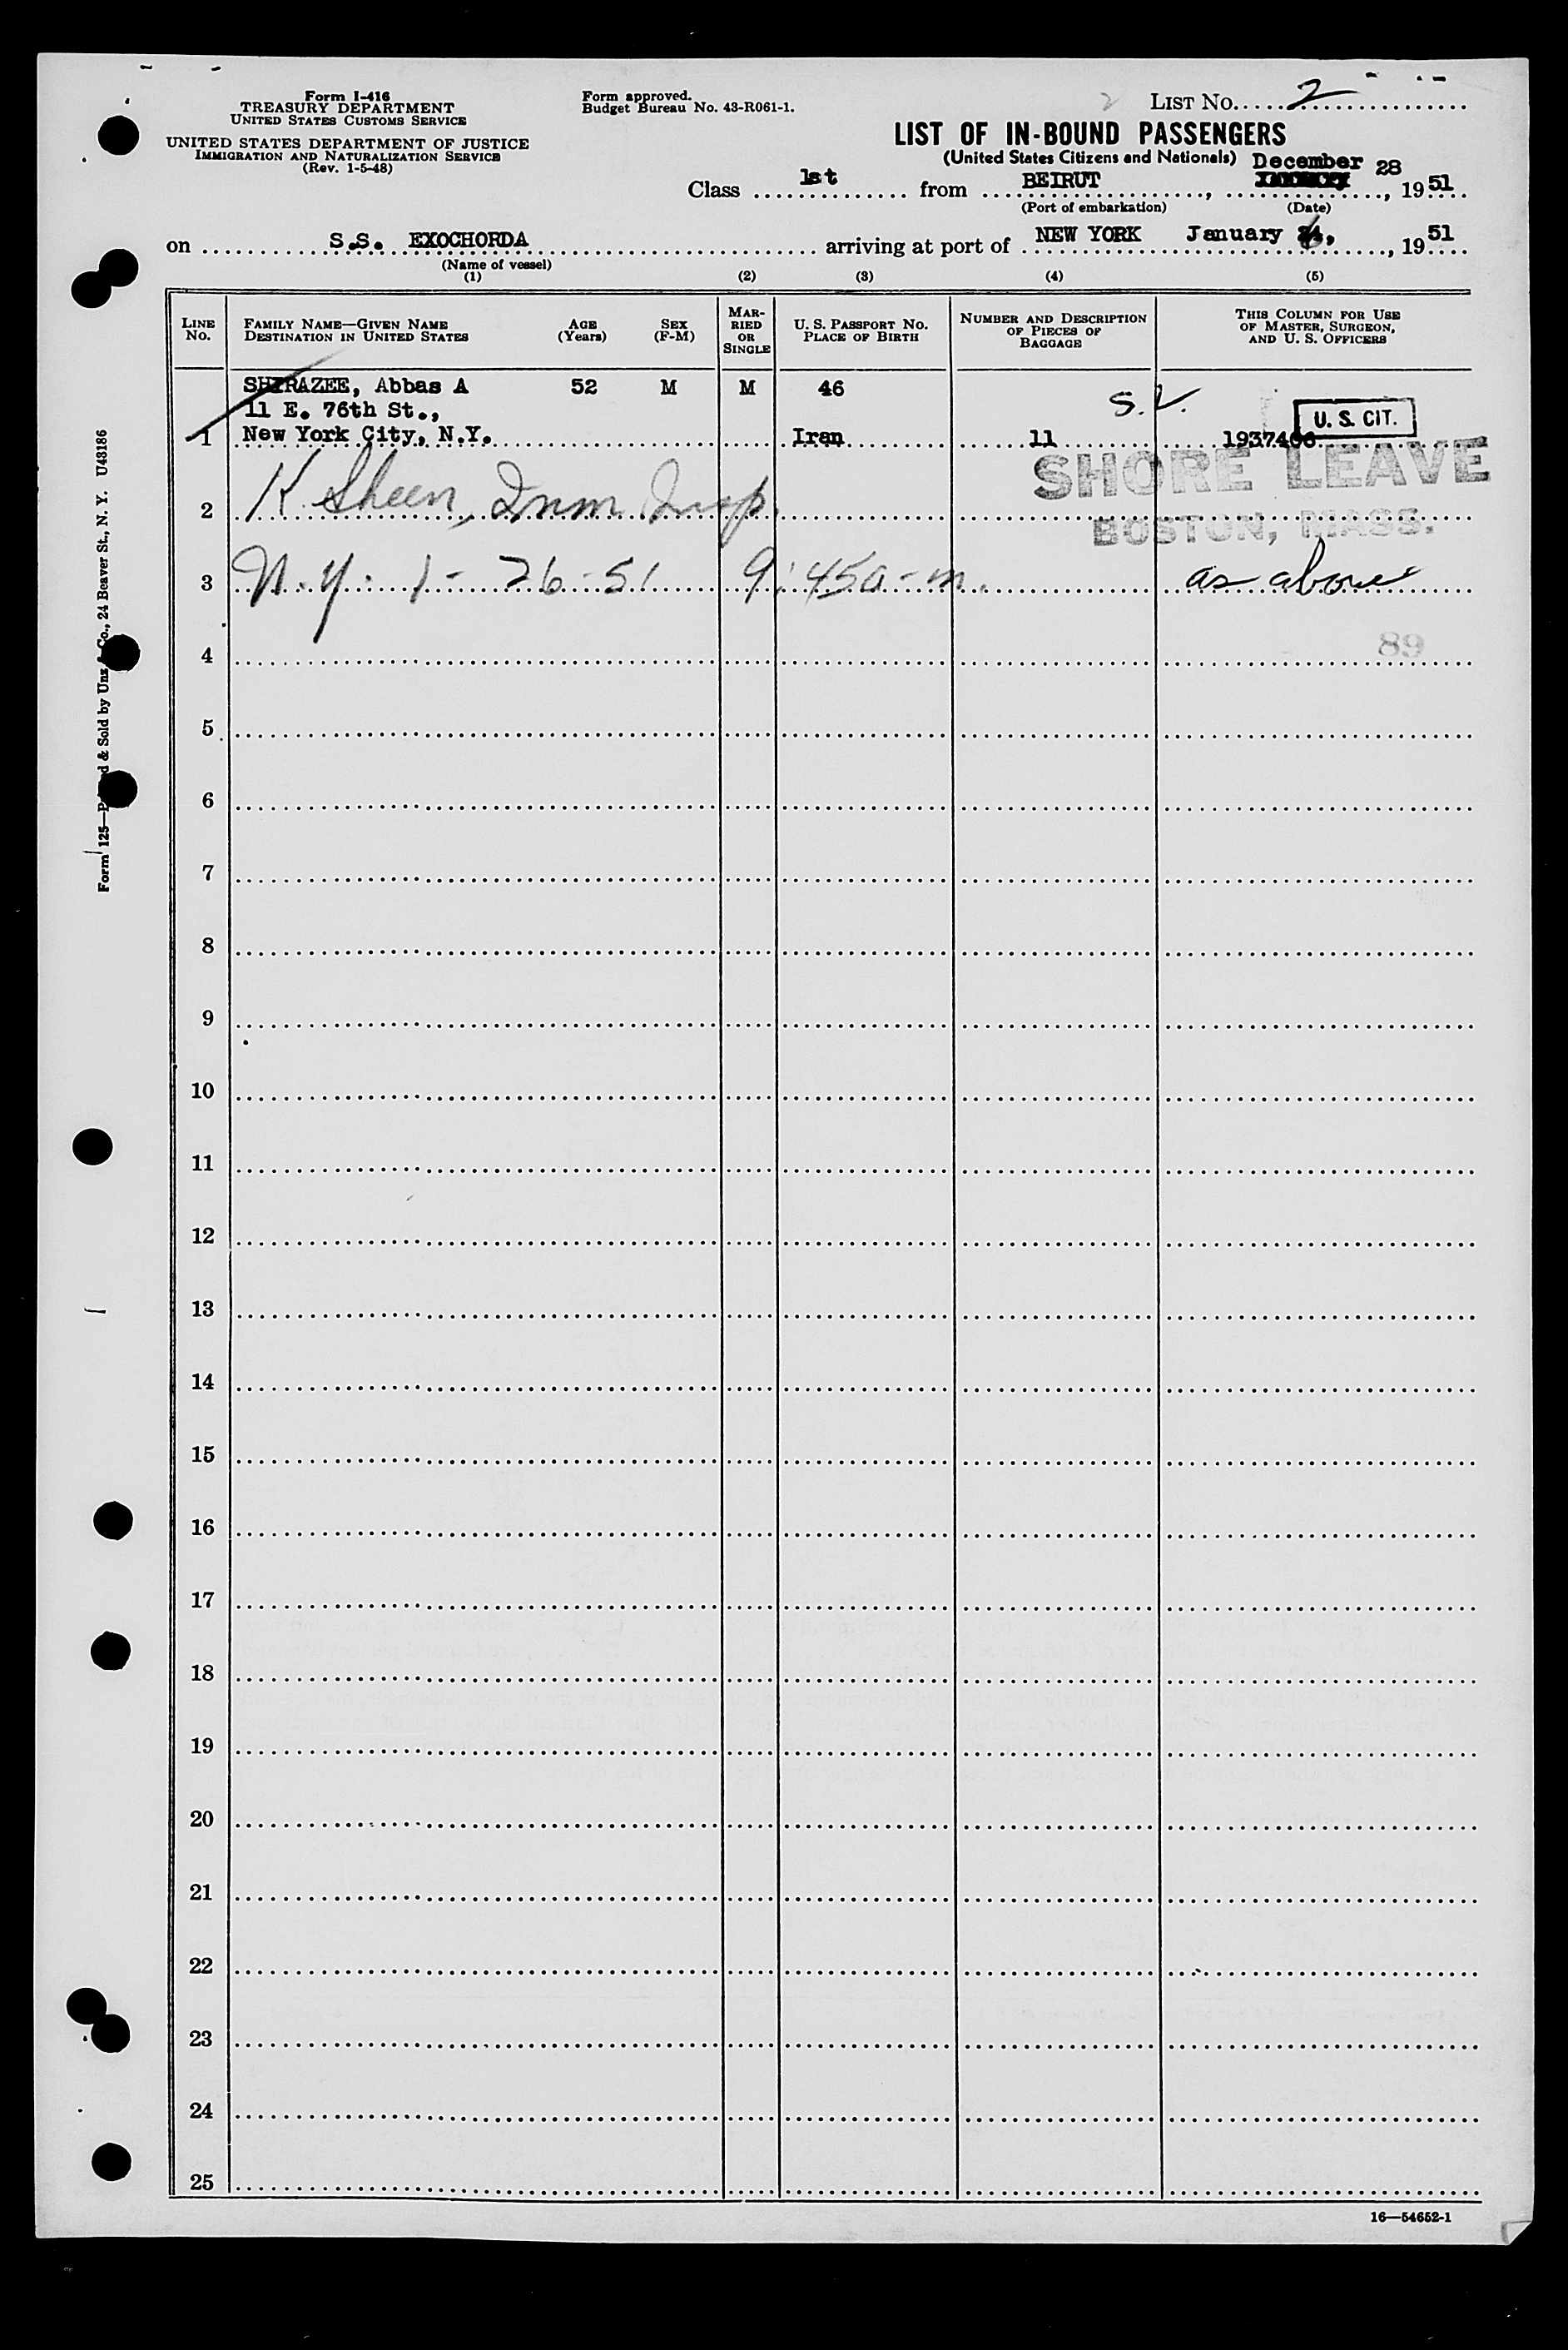 Form I-416
TREASURY DEPARTMENT
UNITED STATES CUSTOMS SERVICE
UNITED STATES DEPARTMENT OF JUSTICE
IMMIGRATION AND NATURALIZATION SERVICE
(Rev. 1-5-48)
Form approved.
Budget Bureau No. 43-R061-1.
2 LIST No. 2
LIST OF IN-BOUND PASSENGERS
(United States Citizens and Nationals)
Class 1st from BEIRUT, December 28, 1951
(Port of embarkation) (Date)
on S.S. EXOCHORDA arriving at port of NEW YORK January, 1951
(Name of vessel)
(1) (2) (3) (4) (5)
LINE No.
FAMILY NAME—GIVEN NAME
DESTINATION IN UNITED STATES
AGE (Years)
SEX (F-M)
MARRIED OR SINGLE
U. S. PASSPORT No.
PLACE OF BIRTH
NUMBER AND DESCRIPTION OF PIECES OF BAGGAGE
THIS COLUMN FOR USE OF MASTER, SURGEON, AND U. S. OFFICERS
SHIRAZEE, Abbas A 52 M M 46
11 E. 76th St., S.V. U. S. CIT.
1 New York City, N.Y. Iran 11 1937406
SHORE LEAVE
2 K Sheen, Imm Insp.
BOSTON, MASS.
3 N.Y. 1-26-51 9:45a-m. as above
89
4
5
6
7
8
9
10
11
12
13
14
15
16
17
18
19
20
21
22
23
24
25
16—54652-1
Form 125—P d & Sold by Unz & Co., 24 Beaver St., N. Y. U43186